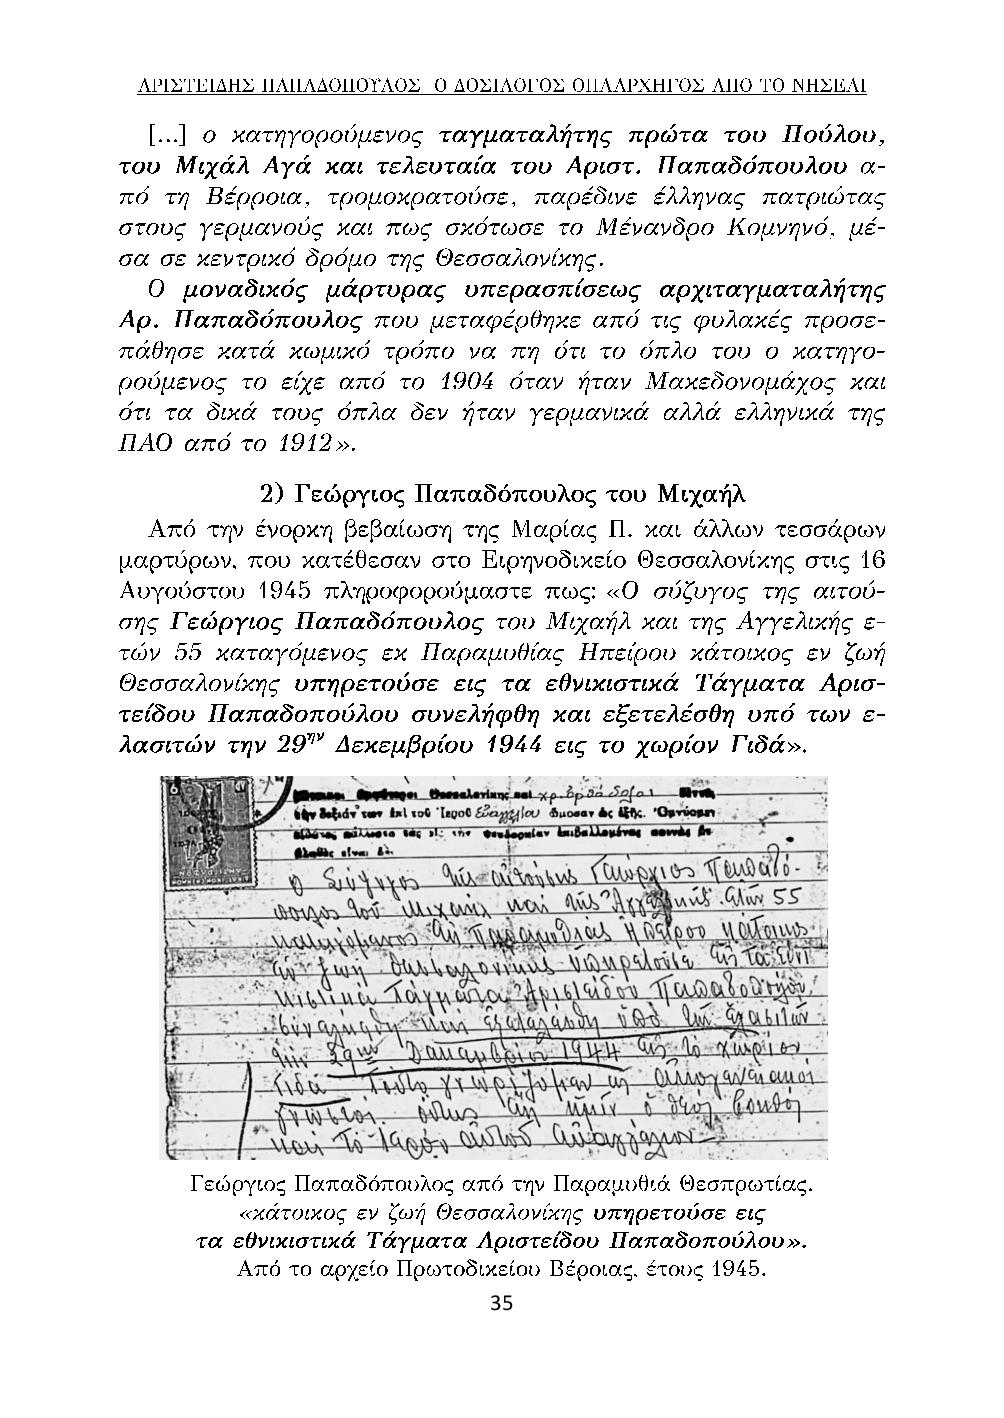 ΑΡΙΣΤΕΙΔΗΣ ΠΑΠΑΔΟΠΟΥΛΟΣ Ο ΔΟΣΙΛΟΓΟΣ ΟΠΛΑΡΧΗΓΟΣ ΑΠΟ ΤΟ ΝΗΣΕΛΙ
[...] ο κατηγορούμενος ταγματαλήτης πρώτα του Πούλου,
του Μιχάλ Αγά και τελευταία του Αριστ. Παπαδόπουλου α-
πό τη Βέρροια, τρομοκρατούσε, παρέδινε έλληνας πατριώτας
στους γερμανούς και πως σκότωσε το Μένανδρο Κομνηνό, μέ-
σα σε κεντρικό δρόμο της Θεσσαλονίκης.
Ο μοναδικός μάρτυρας υπερασπίσεως αρχιταγματαλήτης
Αρ. Παπαδόπουλος που μεταφέρθηκε από τις φυλακές προσε-
πάθησε κατά κωμικό τρόπο να πη ότι το όπλο του ο κατηγο-
ρούμενος το είχε από το 1904 όταν ήταν Μακεδονομάχος και
ότι τα δικά τους όπλα δεν ήταν γερμανικά αλλά ελληνικά της
ΠΑΟ από το 1912».
2) Γεώργιος Παπαδόπουλος του Μιχαήλ
Από την ένορκη βεβαίωση της Μαρίας Π. και άλλων τεσσάρων
μαρτύρων, που κατέθεσαν στο Ειρηνοδικείο Θεσσαλονίκης στις 16
Αυγούστου 1945 πληροφορούμαστε πως: «Ο σύζυγος της αιτού-
σης Γεώργιος Παπαδόπουλος του Μιχαήλ και της Αγγελικής ε-
τών 55 καταγόμενος εκ Παραμυθίας Ηπείρου κάτοικος εν ζωή
Θεσσαλονίκης υπηρετούσε εις τα εθνικιστικά Τάγματα Αρισ-
τείδου Παπαδοπούλου συνελήφθη και εξετελέσθη υπό των ε-
λασιτών την 29ην Δεκεμβρίου 1944 εις το χωρίον Γιδά».
Θεσσαλονίκης και
τὴν δεξιάν των ἐπὶ τοῦ Ἱεροῦ Εὐαγγελίου ὤμοσαν ὡς ἑξῆς. Ὁρκιζόμεθα
ὁ Σύζυγος τῆς αἰτούσης Γεώργιος Παπαδό-
πουλος τοῦ Μιχαήλ καὶ τῆς Ἀγγελικῆς ἐτῶν 55
καταγόμενος ἐκ Παραμυθίας Ἠπείρου κάτοικος
ἐν ζωῇ Θεσσαλονίκης ὑπηρετοῦσε εἰς τὰ ἐθνι
κιστικὰ Τάγματα Ἀριστείδου Παπαδοπούλου
συνελήφθη καὶ ἐξετελέσθη ὑπὸ τῶν ἐλασιτῶν
τὴν 29ην Δεκεμβρίου 1944 εἰς τὸ χωρίον
Γιδᾶ Τοῦτο γνωρίζομεν ὡς οἰκογενειακοί
γνωστοί οὕτως ἡμῖν ὁ θεός βοηθός
καὶ τὸ ἱερὸν αὐτοῦ εὐαγγέλιον
Γεώργιος Παπαδόπουλος από την Παραμυθιά Θεσπρωτίας.
«κάτοικος εν ζωή Θεσσαλονίκης υπηρετούσε εις
τα εθνικιστικά Τάγματα Αριστείδου Παπαδοπούλου».
Από το αρχείο Πρωτοδικείου Βέροιας, έτους 1945.
35